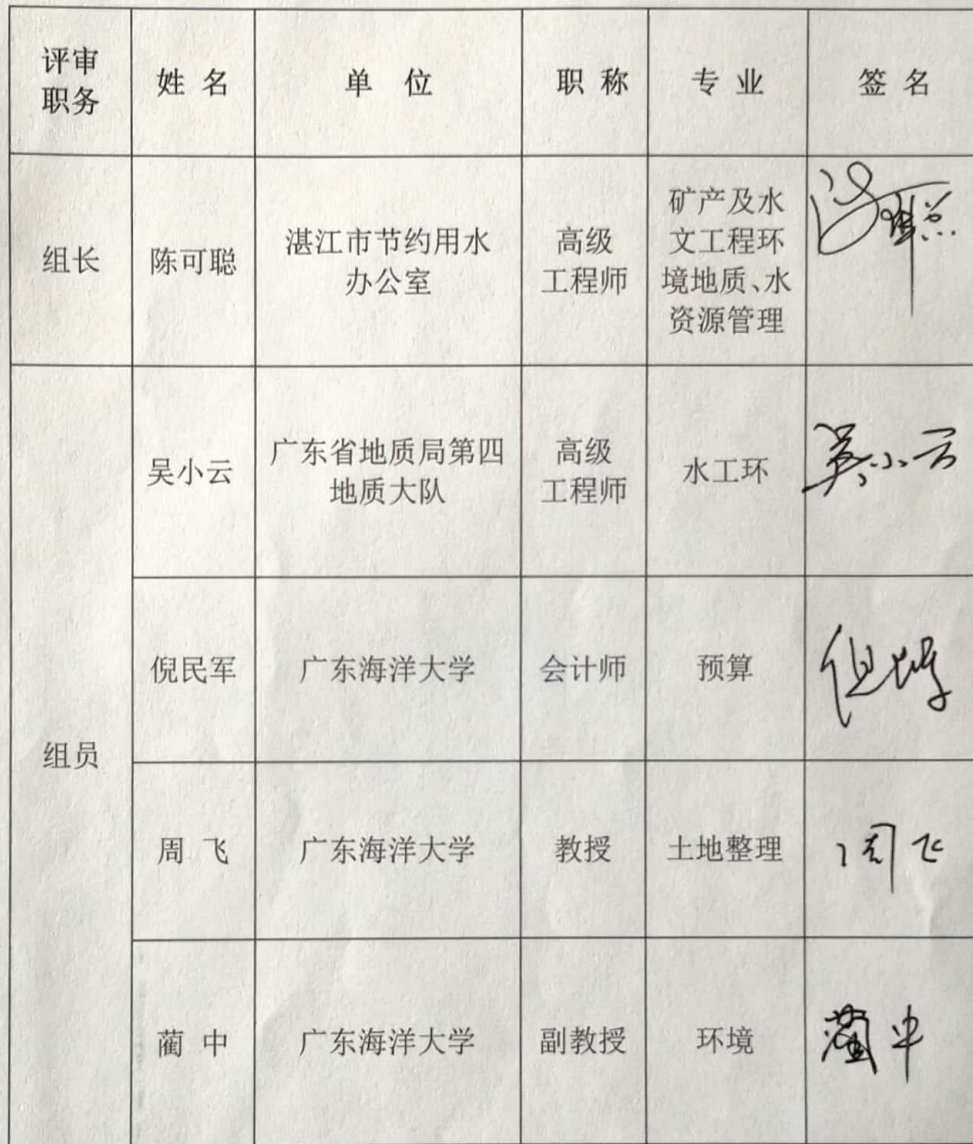 评审
职务
姓 名
单 位
职 称
专 业
签 名
组长
陈可聪
湛江市节约用水
办公室
高级
工程师
矿产及水
文工程环
境地质、水
资源管理
组员
吴小云
广东省地质局第四
地质大队
高级
工程师
水工环
吴小云
倪民军
广东海洋大学
会计师
预算
周 飞
广东海洋大学
教授
土地整理
周飞
蔺 中
广东海洋大学
副教授
环境
蔺中